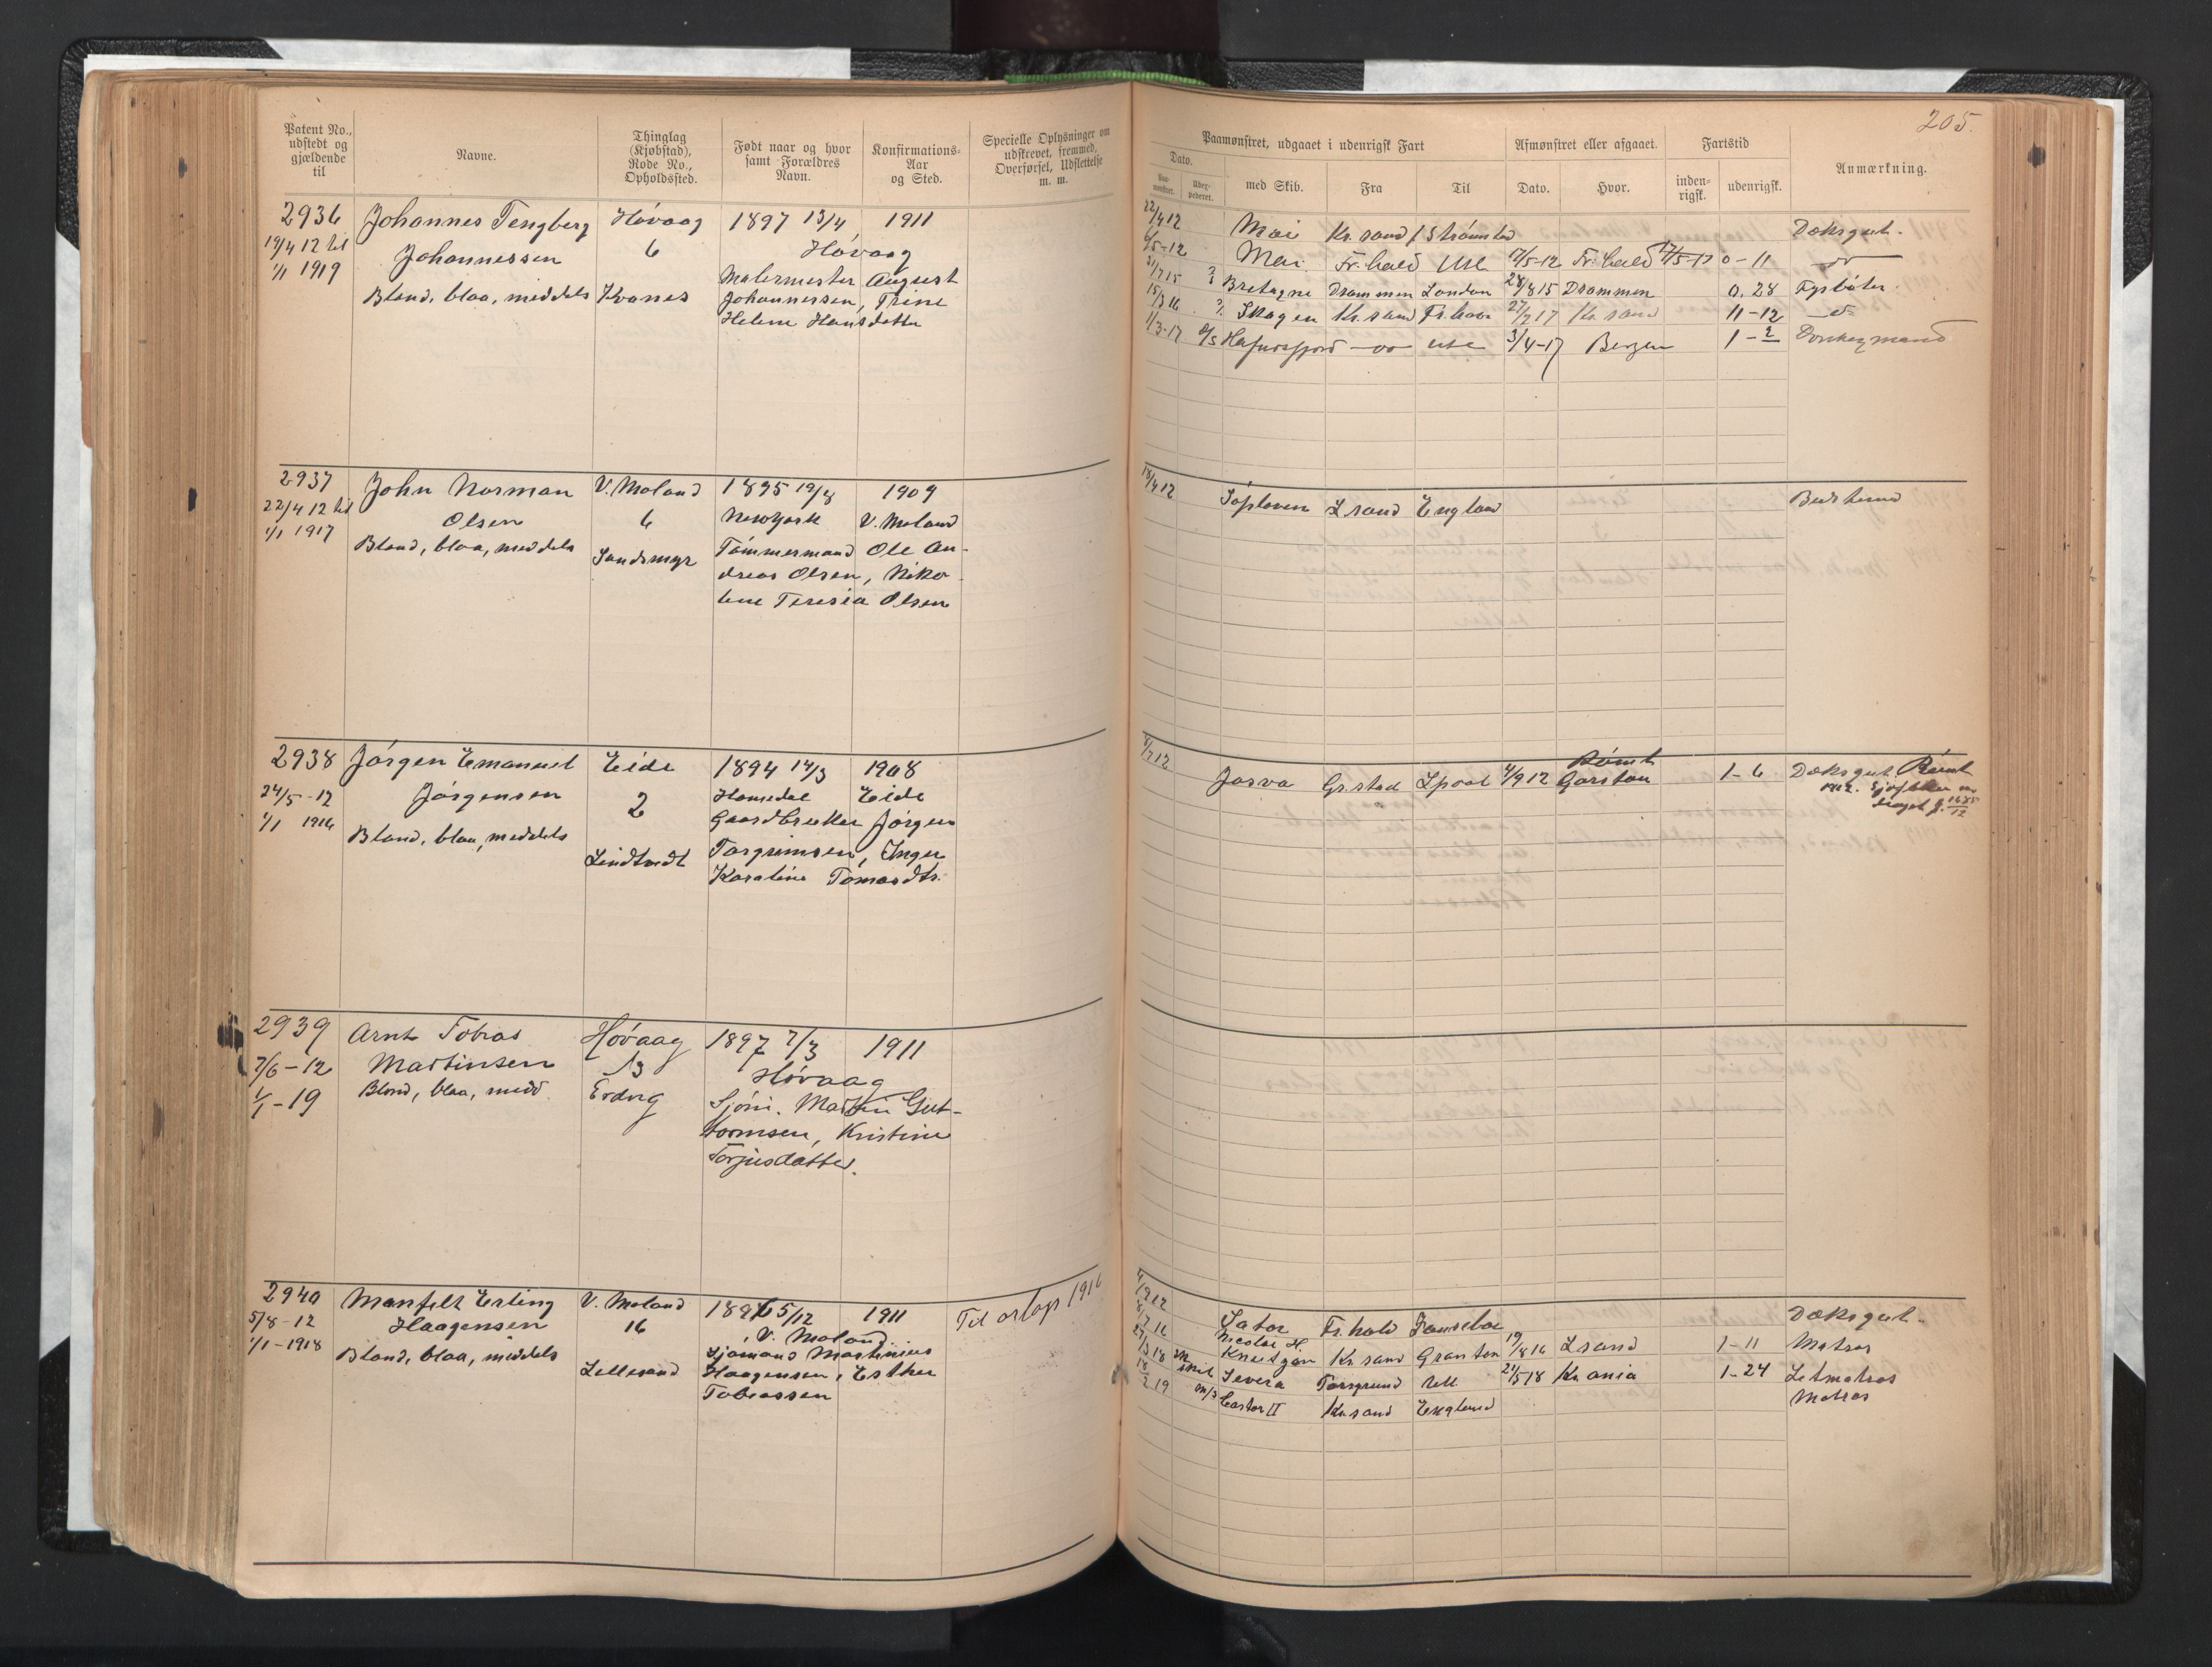 205.
Patent No., udstedt og gjældende til
Navne.
Thinglag (Kjøbstad), Rode No., Opholdssted.
Født naar og hvor samt Forældres Navn.
Konfirmations-Aar og Sted.
Specielle Oplysninger om udskrevet, fremmed, Overførsel, Udslettelse m. m.
Paamønstret, udgaaet i udenrigsk Fart
Afmønstret eller afgaaet.
Fartstid
Anmærkning.
Dato.
med Skib.
Fra
Til
Dato.
Hvor.
inden-rigsk.
udenrigsk.
2936
19/4 12 til
1/1 1919
Johannes Tengberg
Johannessen
Blond, blaa, meddels
Hóvaag
6
Kvanes
1897 13/4
1911
Hóvaag
Malermester August
Johannessen, Trine
Helene Hansdatter
22/4 12 Mai Kr.sand Strömstad Dæksgut.
6/5-12 Mai Fr.hald Utl 17/5-12 Fr.hald 0-11
15 Bretagne Drammen London 28/8 15 Drammen 0.28 Fyrböter.
15/3 16 Skagen Kr.sand Fr.havn 27/2 17 Kr.sand 11-12
1/3-17 Hafursfjord Ute 3/4-17 Bergen 1-2 Donkeymand
2937
22/4 12 til
1/1 1917
John Norman
Olsen
Blond, blaa, meddels
V. Moland
6
Sandsmyr
1895 19/8
1909
Newyork
V. Moland
Tömmermand Ole An-
dreas Olsen, Niko-
line Teresia Olsen
18/4 12 Söploven L sand England
2938
24/5-12
1/1 1916
Jörgen Emanuel
Jörgensen
Blond, blaa, meddels
Eide
2
Lindtvedt
1894 14/3
1908
Homedal
Eide
Gaardbruker Jörgen
Torgrimsen, Inger
Karoline Tomasdtr.
8/7 12 Jarva Gr.stad Lpool 4/9 12 Römt Garston 1-6 Dæksgut. Römt
2939
7/6-12
1/1-19
Arnt Tobias
Martinsen
Blond, blaa, medd.
Hóvaag
13
1897 7/3
1911
Hóvaag
Sjóm. Martin Gut-
tormsen, Kristine
Torjusdatter.
2940
5/8-12
1/1-1918
Manfelt Erling
Haagensen
Blond, blaa, middels
V. Moland
16
Lillesand
1896 5/12
1911
V. Moland
Sjömand Martinius
Haagensen, Esther
Tobiassen
Til orlogs 1916
4/9 12 Sator Fr.hald Dæksgut.
8/7 16 Nicolai H. Knudtzon Kr.sand Granton 19/8 16 L sand 1-11 Matros
27/3 18 Severa Porsgrund Utl 21/5 18 Kr.ania 1-24 Letmatros
18/2 19 M/S Castor II Kr.sand England Matros